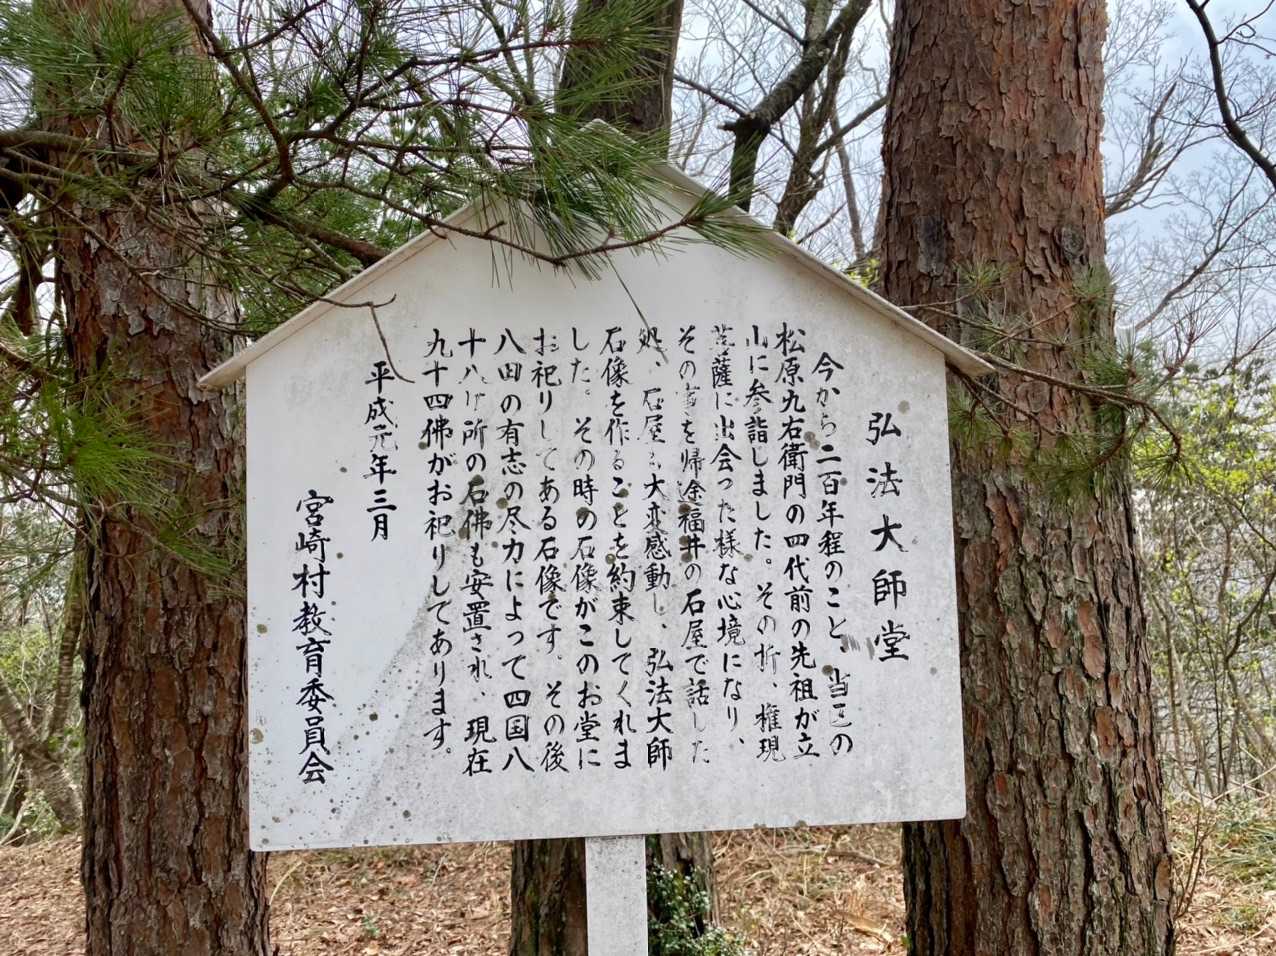 弘法大師堂
今から二百年程のこと、当区の
松原九右衛門の四代前の先祖が立
山に参詣しました。その折、権現
菩薩に出会った様な心境になり、
その事を帰途福井の石屋で話した
処、石屋も大変感動し、弘法大師
石像を作ることを約束してくれま
した。その時の石像がこのお堂に
お祀りしてある石像です。その後
八田の有志の尽力によって四国八
十八ヶ所の石佛も安置され、現在
九十四佛がお祀りしてあります。
平成元年三月
宮崎村教育委員会